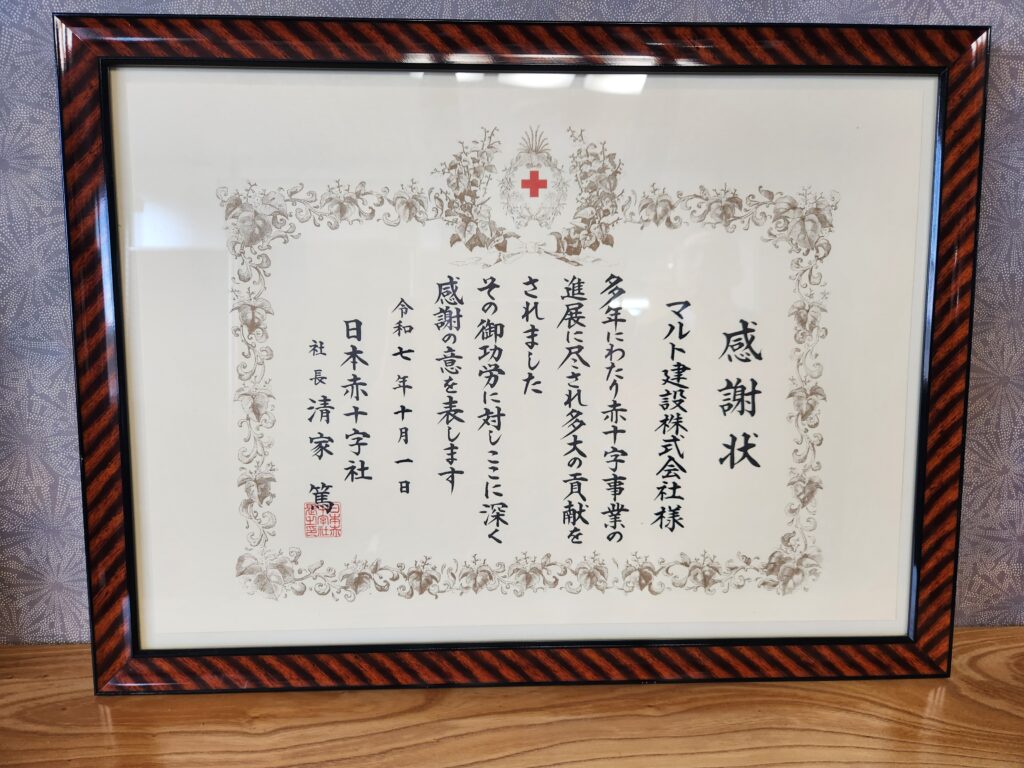 感謝状
マルト建設株式会社様
多年にわたり赤十字事業の
進展に尽され多大の貢献を
されました
その御功労に対しここに深く
感謝の意を表します
令和七年十月一日
日本赤十字社
社長 清家 篤